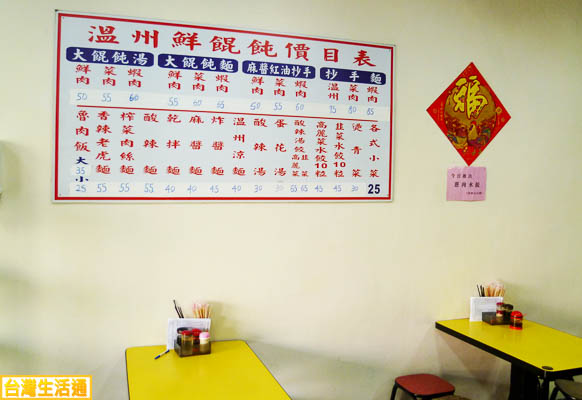 溫州鮮餛飩價目表
大餛飩湯 大餛飩麵 麻醬紅油抄手 抄手麵
鮮肉 菜肉 蝦肉 鮮肉 菜肉 蝦肉 鮮肉 菜肉 蝦肉 溫州 菜肉 蝦肉
50 55 60 55 60 65 50 55 60 75 80 85
魯肉飯 大35 小25
香辣老虎麵 55
榨菜肉絲麵 55
酸辣麵 55
乾拌麵 40
麻醬麵 40
炸醬麵 45
溫州涼麵 40
酸辣湯 30
蛋花湯 30
酸辣湯餃 高麗菜 韭菜 65 65
高麗菜水餃10粒 45
韭菜水餃10粒 45
燙青菜
各式小菜 25
福
台灣生活通